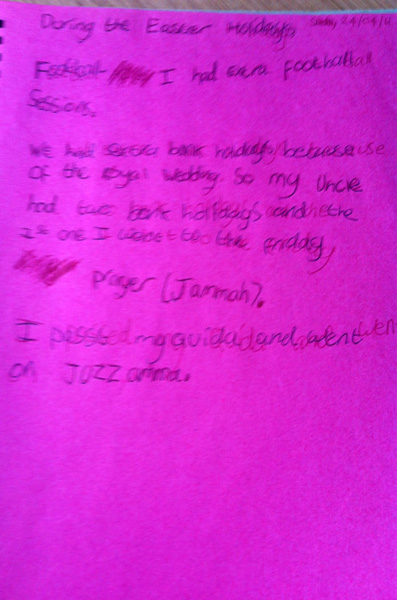 During the Easter Holidays Sunday 24/04/11
Football I had extra football
Sessions.
We had extra bank holidays because
of the royal wedding. So my uncle
had two bank holidays and the
1st one I went to the friday
prayer (Jammah).
I passed my quida and went
on JUZZ amma.